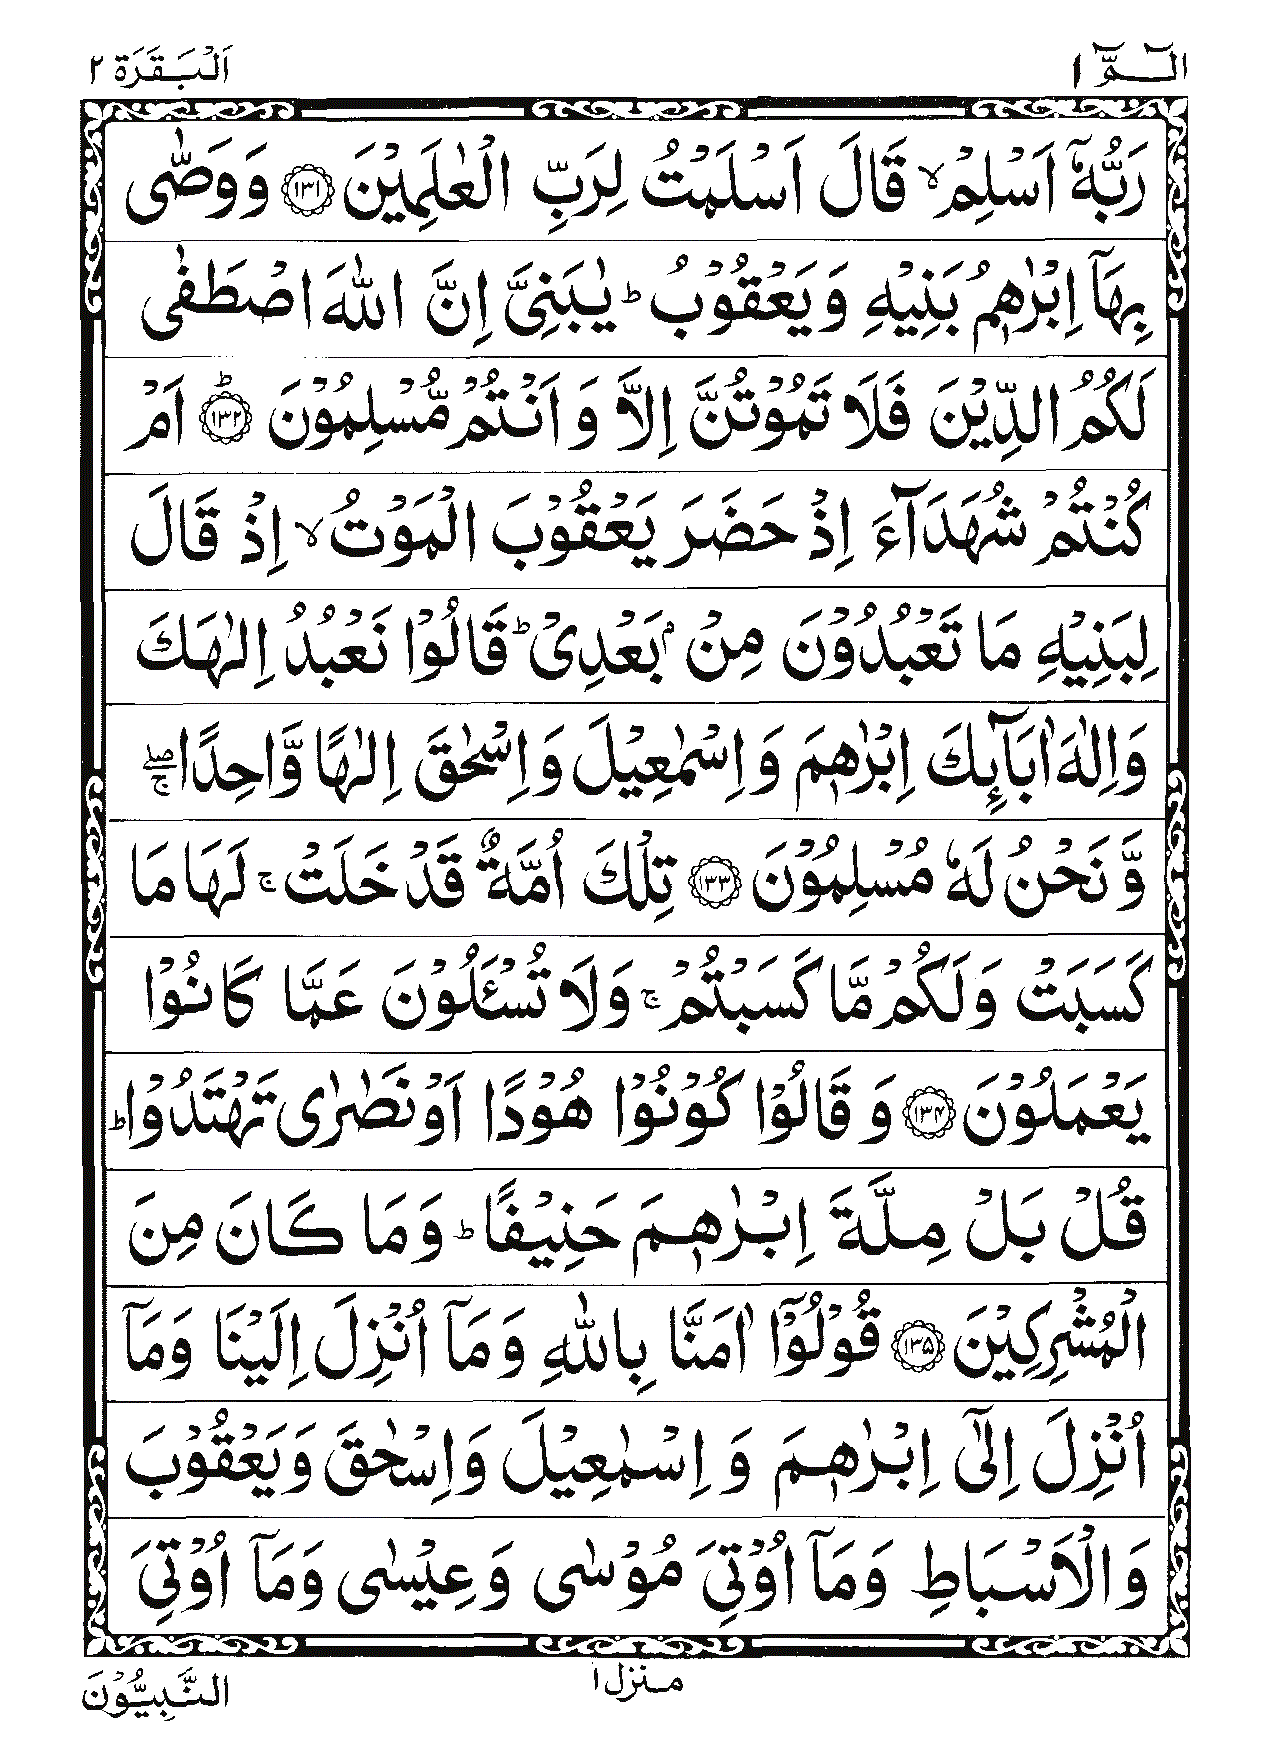 الٓـمّٓ ١ اَلْبَقَرَة ٢
رَبُّهٗۤ اَسْلِمْ ۙ قَالَ اَسْلَمْتُ لِرَبِّ الْعٰلَمِيْنَ ۝۱۳۱ وَوَصّٰى
بِهَاۤ اِبْرٰهٖمُ بَنِيْهِ وَيَعْقُوْبُ ؕ يٰبَنِيَّ اِنَّ اللهَ اصْطَفٰى
لَكُمُ الدِّيْنَ فَلَا تَمُوْتُنَّ اِلَّا وَاَنْتُمْ مُّسْلِمُوْنَ ۝۱۳۲ؕ اَمْ
كُنْتُمْ شُهَدَآءَ اِذْ حَضَرَ يَعْقُوْبَ الْمَوْتُ ۙ اِذْ قَالَ
لِبَنِيْهِ مَا تَعْبُدُوْنَ مِنْۢ بَعْدِيْ ؕ قَالُوْا نَعْبُدُ اِلٰهَكَ
وَاِلٰهَ اٰبَآئِكَ اِبْرٰهٖمَ وَاِسْمٰعِيْلَ وَاِسْحٰقَ اِلٰهًا وَّاحِدًا ۖۚ
وَّنَحْنُ لَهٗ مُسْلِمُوْنَ ۝۱۳۳ تِلْكَ اُمَّةٌ قَدْ خَلَتْ ۚ لَهَا مَا
كَسَبَتْ وَلَكُمْ مَّا كَسَبْتُمْ ۚ وَلَا تُسْـَٔلُوْنَ عَمَّا كَانُوْا
يَعْمَلُوْنَ ۝۱۳۴ وَقَالُوْا كُوْنُوْا هُوْدًا اَوْ نَصٰرٰى تَهْتَدُوْا ؕ
قُلْ بَلْ مِلَّةَ اِبْرٰهٖمَ حَنِيْفًا ؕ وَمَا كَانَ مِنَ
الْمُشْرِكِيْنَ ۝۱۳۵ قُوْلُوْۤا اٰمَنَّا بِاللهِ وَمَاۤ اُنْزِلَ اِلَيْنَا وَمَاۤ
اُنْزِلَ اِلٰۤى اِبْرٰهٖمَ وَاِسْمٰعِيْلَ وَاِسْحٰقَ وَيَعْقُوْبَ
وَالْاَسْبَاطِ وَمَاۤ اُوْتِيَ مُوْسٰى وَعِيْسٰى وَمَاۤ اُوْتِيَ
منزل ١
النَّبِيُّوْنَ